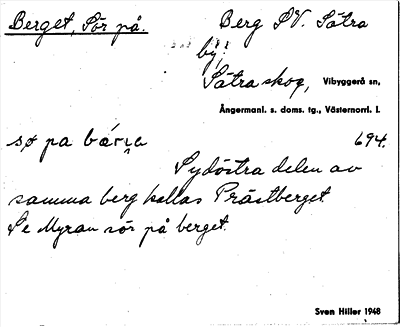 Berget, Sör på. Berg SV. Sätra
by,
Sätra skog, Vibyggerå sn,
Ångermanl. s. doms. tg., Västernorrl. l.
sø pa bǽrɟa 694.
Sydöstra delen av
samma berg kallas Prästberget.
Se Myran sör på berget.
Sven Hiller 1948